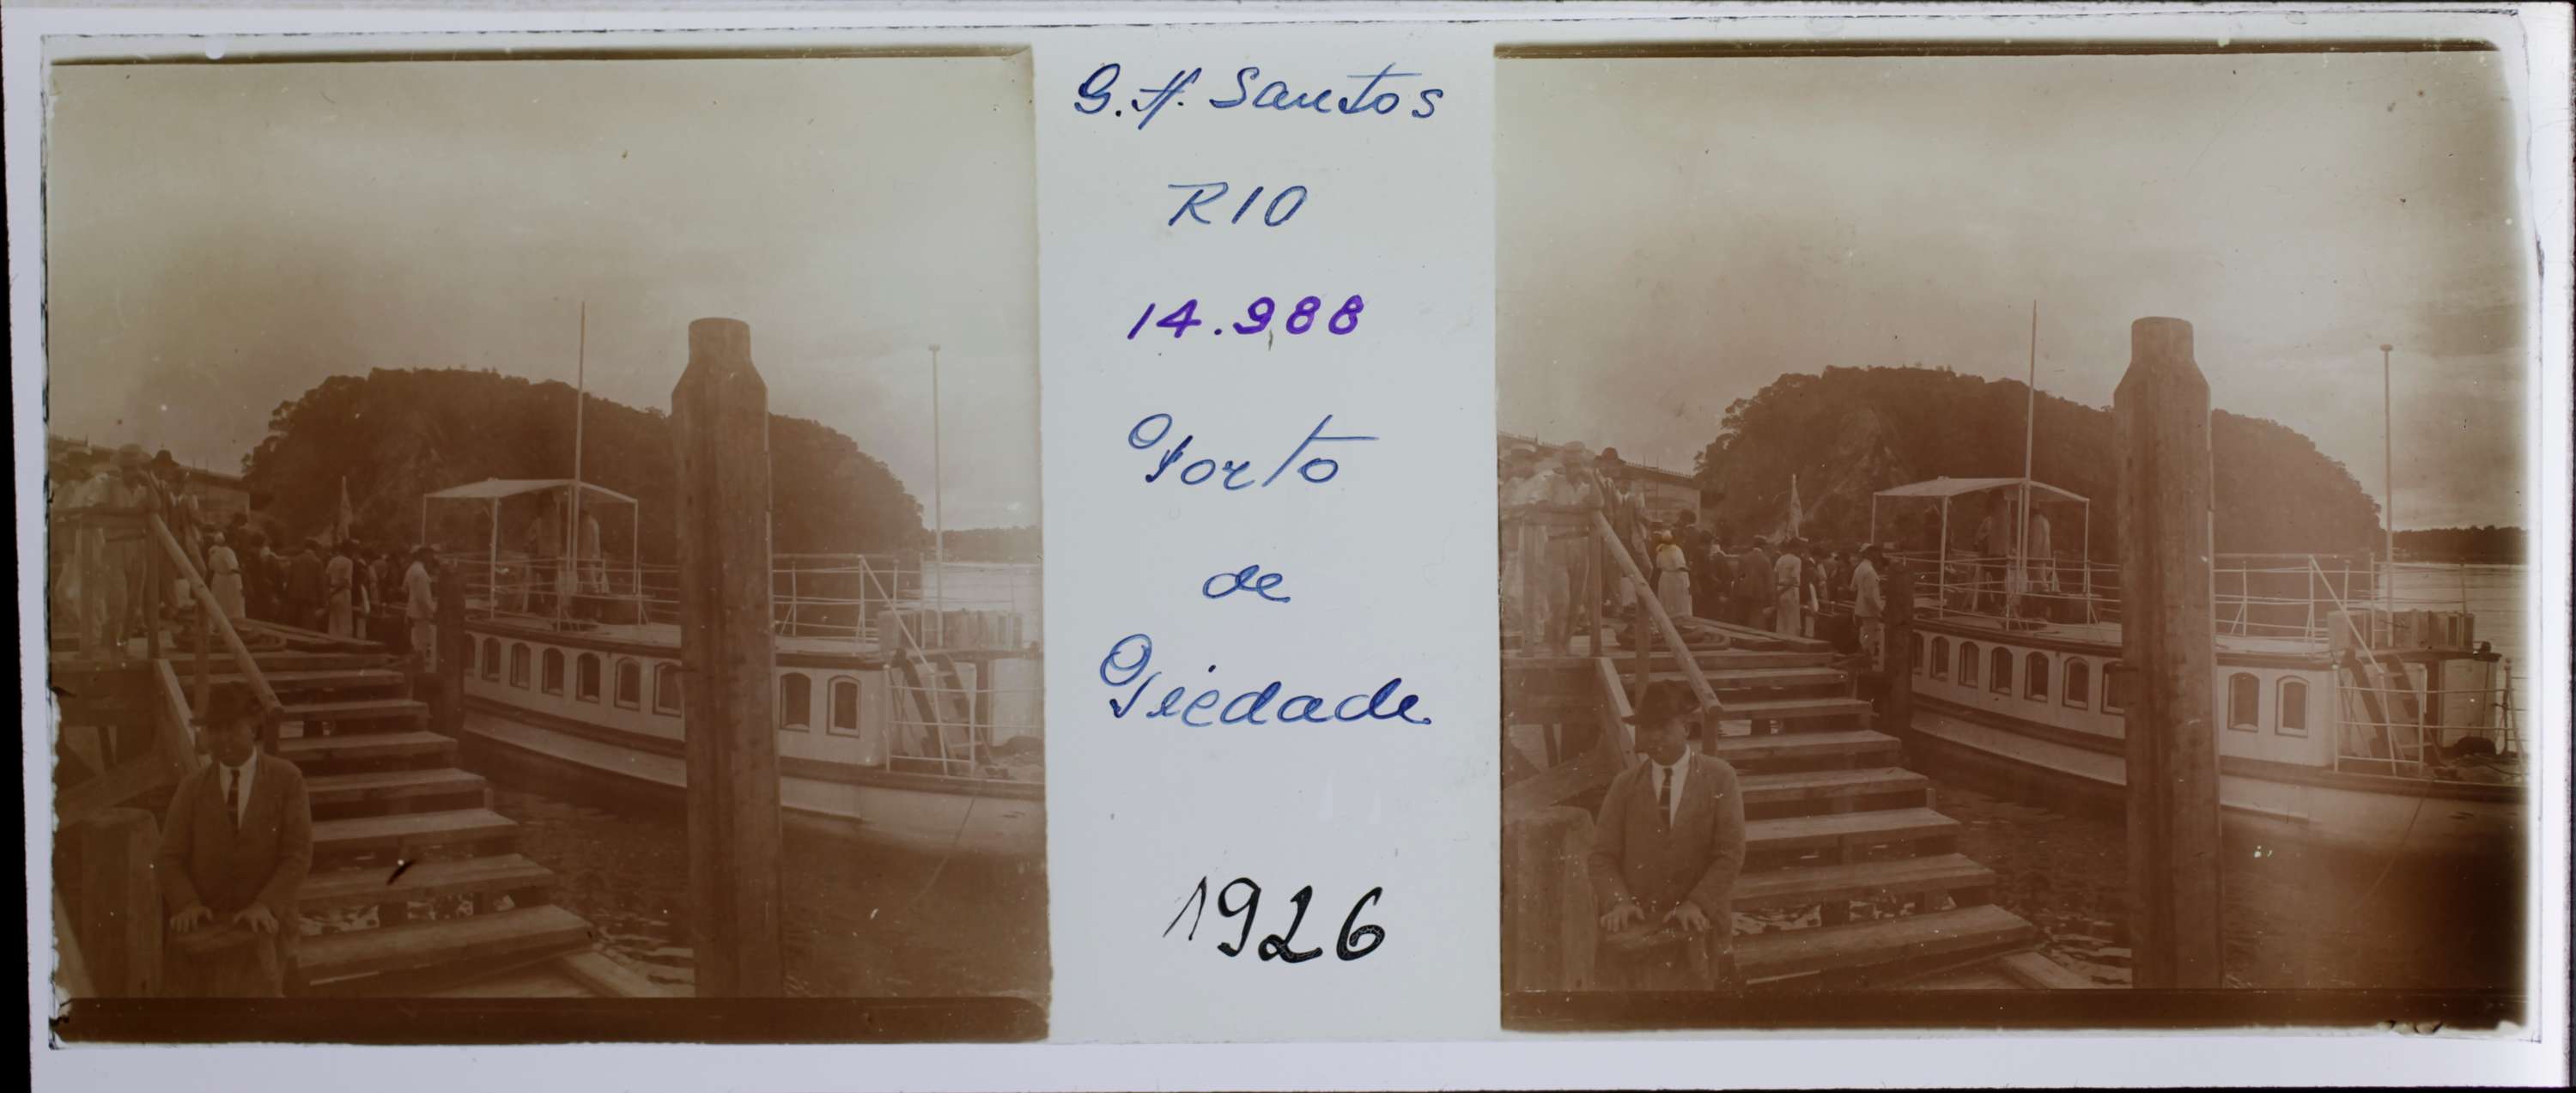 G. H. Santos
RIO
14.988
Porto
de
Piedade
1926